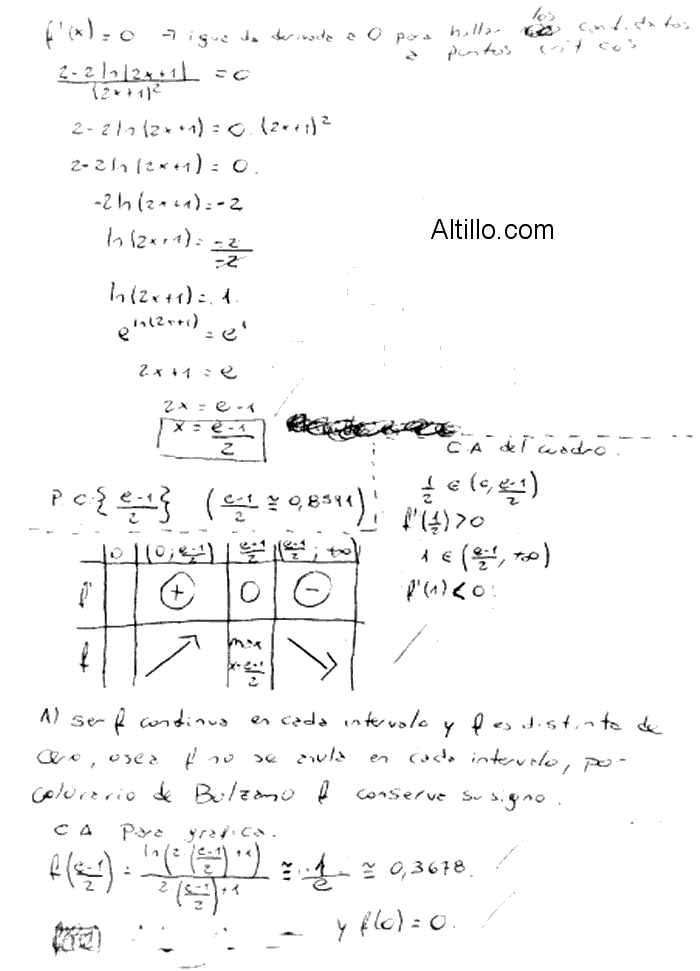 f'(x) = 0 → igualo derivada a 0 para hallar los candidatos
a puntos críticos
2-2 ln|2x+1| / (2x+1)² = 0
2-2ln(2x+1) = 0.(2x+1)²
2-2ln(2x+1) = 0.
-2ln(2x+1) = -2
Altillo.com
ln(2x+1) = -2/-2
ln(2x+1) = 1.
e^ln(2x+1) = e^1
2x+1 = e
2x = e-1
x = e-1/2
C.A del cuadro.
P.C: {e-1/2} (e-1/2 ≅ 0,8591)
1/2 ∈ (0, e-1/2)
f'(1/2) > 0
1 ∈ (e-1/2, +∞)
f'(1) < 0
0 (0; e-1/2) e-1/2 (e-1/2; +∞)
f' + 0 -
f ↗ max x=e-1/2 ↘
Al ser f' continua en cada intervalo y f' es distinta de
cero, osea f' no se anula en cada intervalo, por
colorario de Bolzano f' conserva su signo.
CA Para gráfica.
f(e-1/2) = ln(2(e-1/2)+1) / 2(e-1/2)+1 ≅ 1/e ≅ 0,3678.
y f(0) = 0.